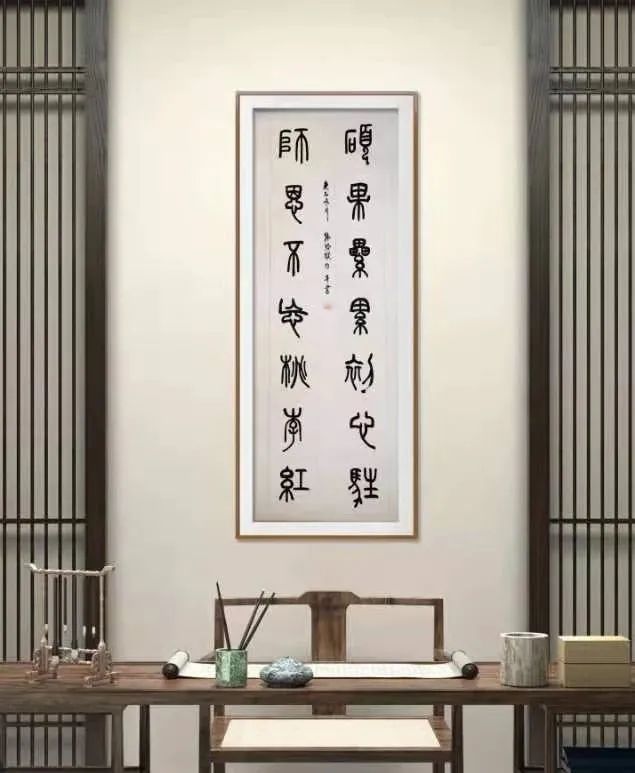 碩果纍累初心駐
師恩不忘桃李紅